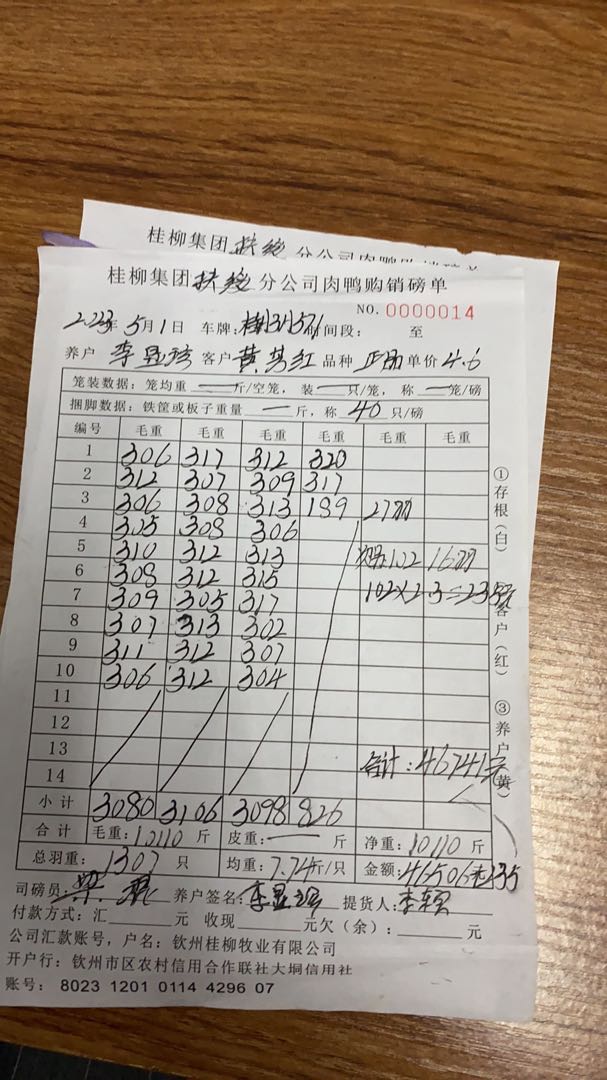 桂柳集团扶绥分公司肉鸭购销磅单
桂柳集团扶绥分公司肉鸭购销磅单
NO. 0000014
年5月1日 车牌: 时间段: 至
养户 李显 客户 黄 红 品种 单价4.6
笼装数据: 笼均重 — 斤/空笼, 装 — 只/笼, 称 — 笼/磅
捆脚数据: 铁筐或板子重量 — 斤, 称 40 只/磅
编号 毛重 毛重 毛重 毛重 毛重 毛重
1 306 317 312 320
2 312 307 309 317
3 306 308 313 189 27
4 305 308 306
5 310 312 313 102 16
6 308 312 315
7 309 305 317 102×2.3=235元
8 307 313 302
9 311 312 307
10 306 312 304
11
12
13 合计:46741元
14
小计 3080 3106 3098 826
合计 毛重:10110 斤 皮重: — 斤 净重:10110 斤
总羽重: 1307 只 均重:7.74斤/只 金额:46506 235
司磅员: 梁 养户签名: 李显 提货人: 李颖
付款方式: 汇 元 收现 元欠(余): 元
公司汇款账号, 户名: 钦州桂柳牧业有限公司
开户行: 钦州市区农村信用合作联社大垌信用社
账号: 8023 1201 0114 4296 07
①存根(白) 客户(红) ③养户(黄)